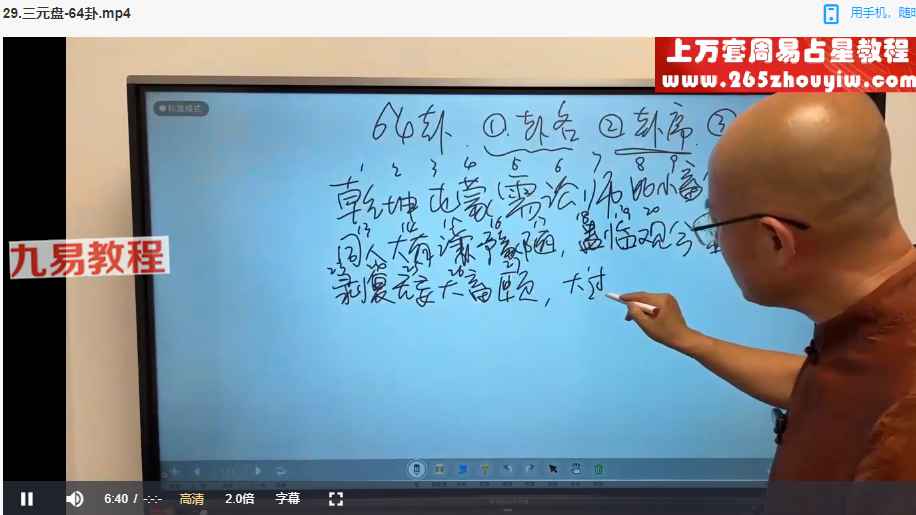 29.三元盘-64卦.mp4
用手机，随时
上万套周易占星教程
www.265zhouyiw.com
标准模式
64卦 ①.卦名 ②卦序 ③
1 2 3 4 5 6 7 8 9
乾坤屯蒙需讼师比小畜
13 14 15 16 17 18 19 20
同人大有谦豫随，蛊临观
九易教程
23 24 25 26 27
剥復无妄大畜頤，大过
6:40 / -:-:- 高清 2.0倍 字幕